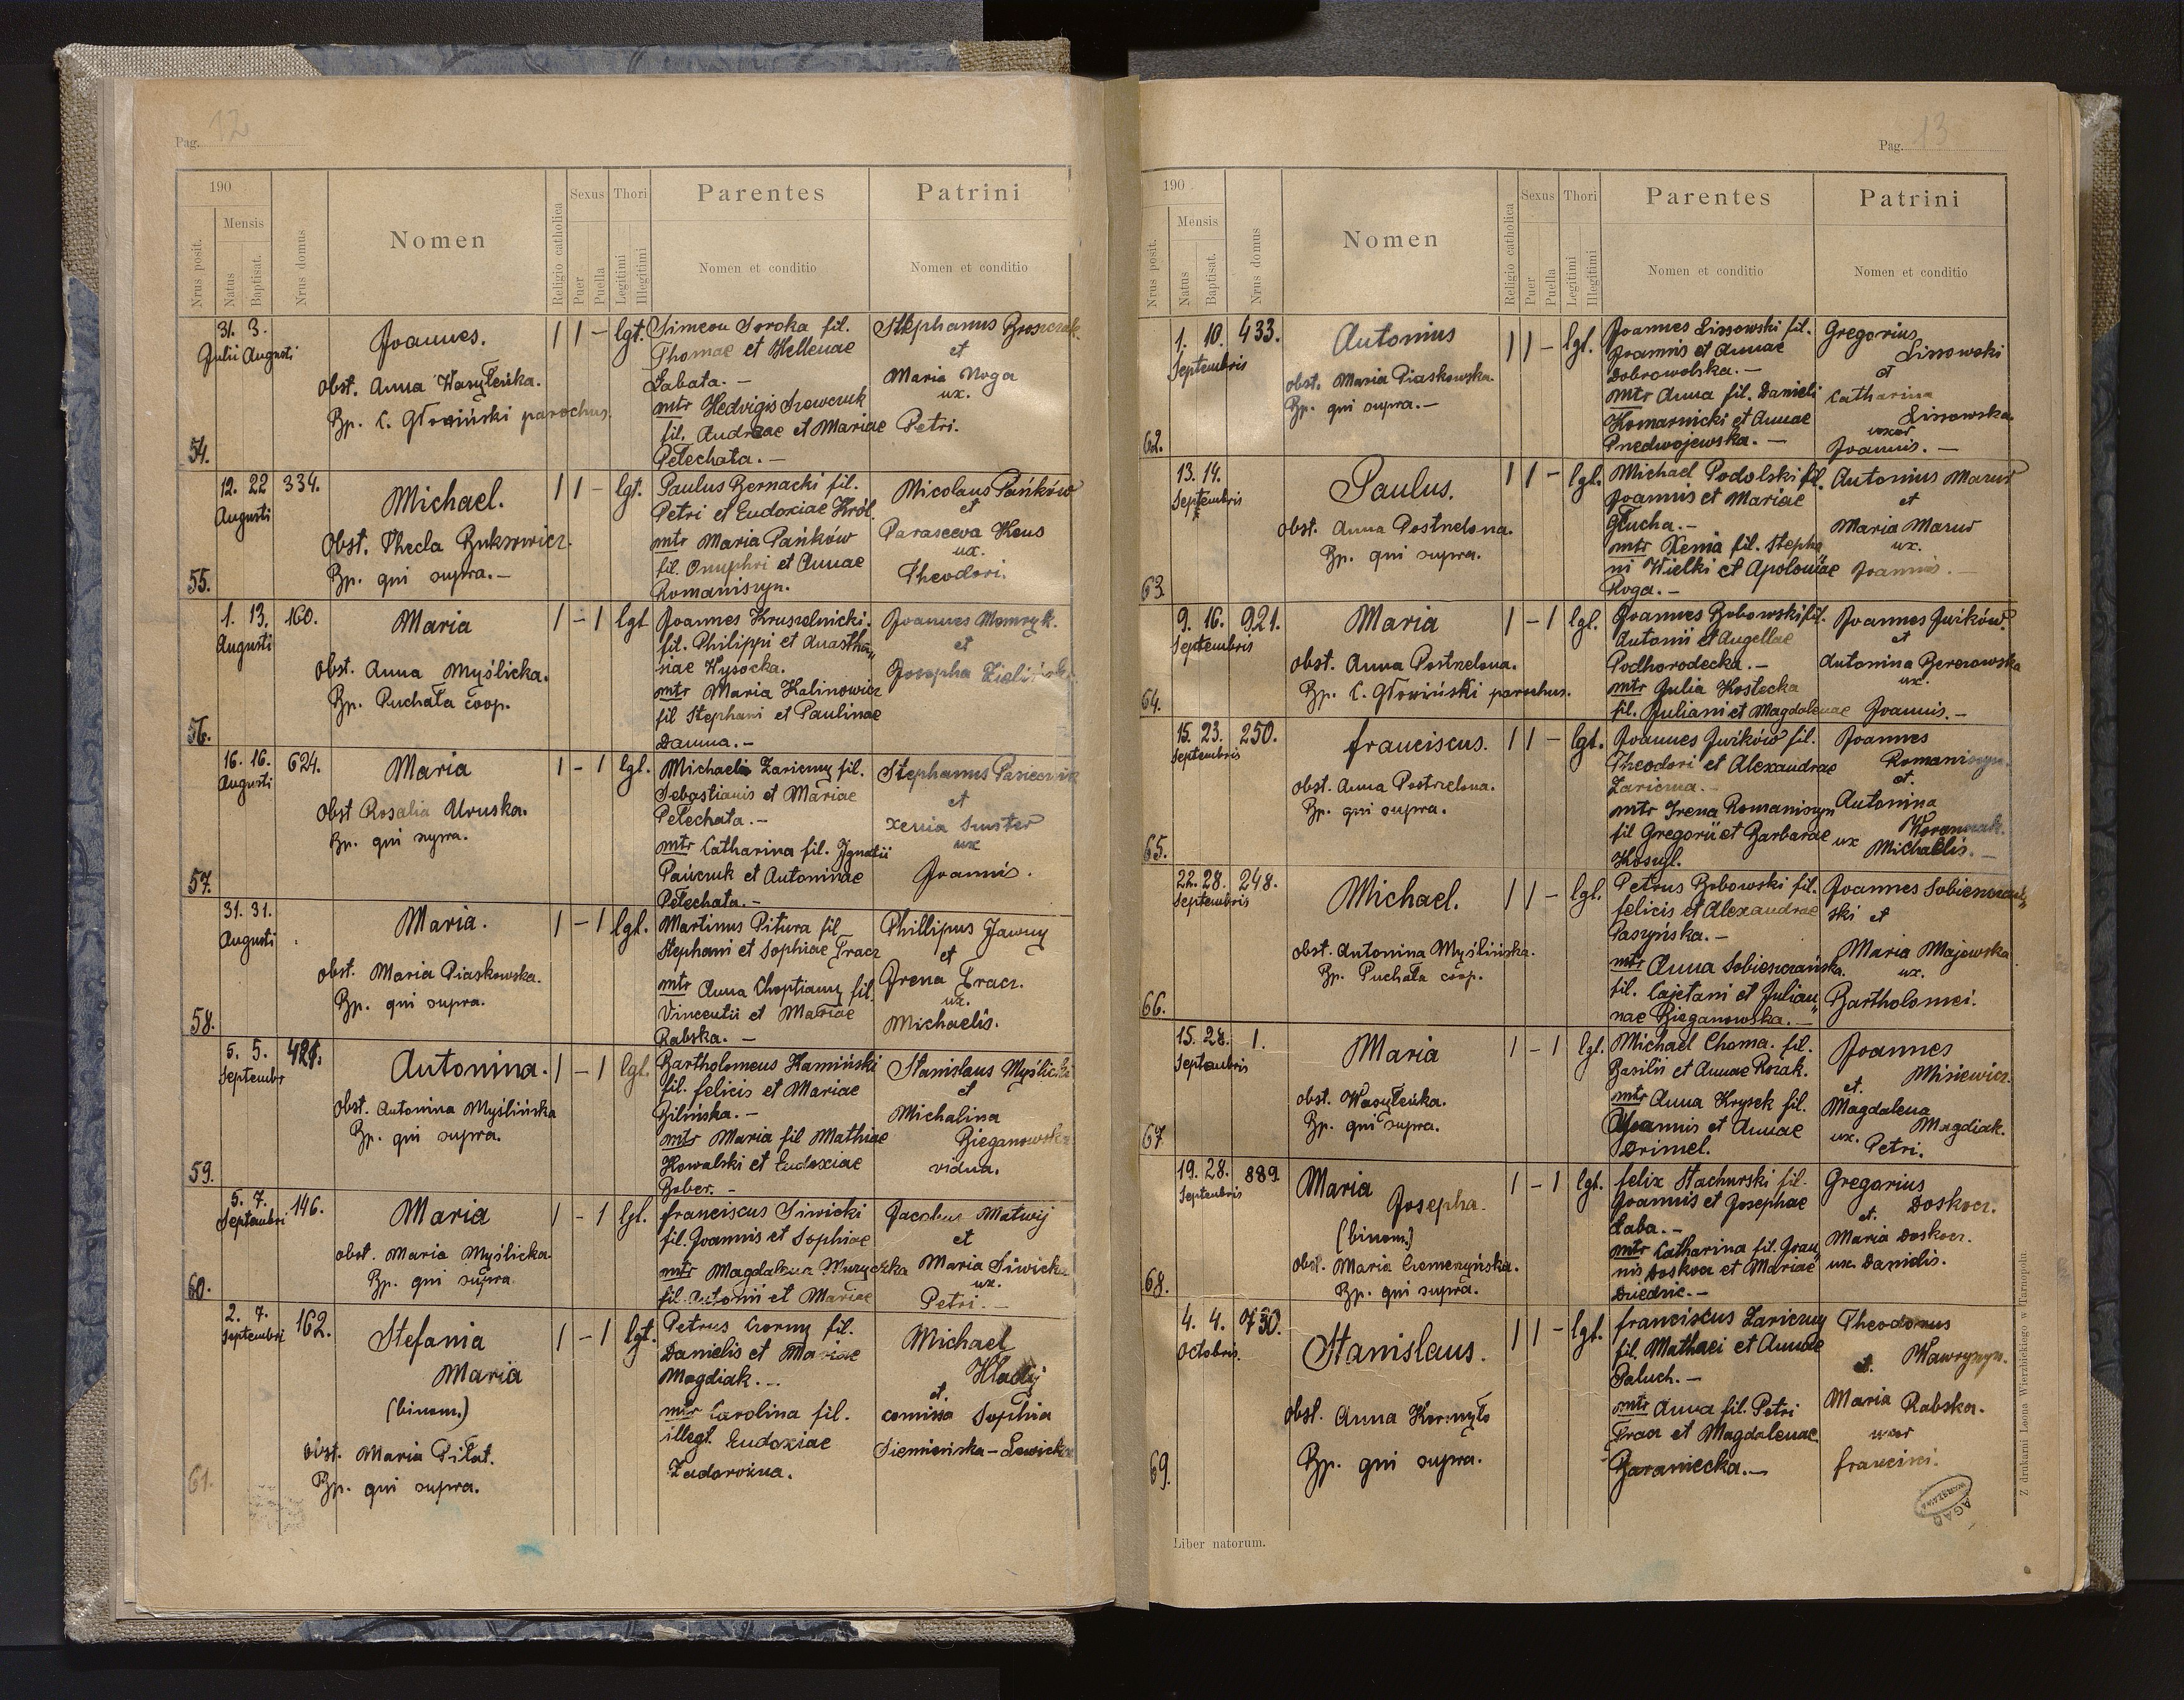 Pag. 12
190
Nrus posit.
Mensis
Natus
Baptisat.
Nrus domus
Nomen
Religio catholica
Sexus
Puer
Puella
Thori
Legitimi
Illegitimi
Parentes
Nomen et conditio
Patrini
Nomen et conditio
54.
31. 3.
Julii Augusti
Joannes.
obst. Anna Wasyleńka.
Bp. C. Głowiński parochus.
1 1 – lgt.
Simeon Soroka fil.
Thomae et Hellenae
Łabata. –
mtr Hedvigis Szewczuk
fil. Andreae et Mariae
Pełechata. –
Stephanus
et
Maria Noga
ux.
Petri.
55.
12. 22
Augusti
334.
Michael.
Obst. Thecla
Bp. qui supra. –
1 1 – lgt.
Paulus Bernacki fil.
Petri et Eudoxiae Król.
mtr Maria Pańków
fil. Onuphri et Annae
Romaniszyn.
Nicolaus Pańków
et
Parasceva Keus
ux.
Theodori.
56.
1. 13.
Augusti
160.
Maria
obst. Anna Myślicka.
Bp. Puchała coop.
1 – 1 lgt
Joannes Kruszelnicki.
fil. Philippi et Anastha„
siae Wysocka.
mtr Maria Kalinowicz
fil Stephani et Paulinae
Danna. –
Joannes Momryk.
et
Josepha
57.
16. 16.
Augusti
624.
Maria
obst Rosalia Uruska.
Bp. qui supra.
1 – 1 lgl.
Michaelis Zariczny fil.
Sebastianis et Mariae
Pełechata. –
mtr Catharina fil. Ignatii
Pańczuk et Antoninae
Pełechata. –
Stephanus Pasiecznik
et
Xenia Suster
ux
Joannis.
58.
31. 31.
Augusti
Maria.
obst. Maria Piaskowska.
Bp. qui supra.
1 – 1 lgl.
Martinus Pitura fil
Stephani et Sophiae Tracz
mtr Anna Choptiany fil.
Vincentii et Mariae
Rabska. –
Phillipus Jawny
et
Irena Tracz.
ux.
Michaelis.
59.
5. 5.
Septembr
421.
Antonina.
obst. Antonina Myślińska
Bp. qui supra.
1 – 1 lgl.
Bartholomeus Kamiński
fil. felicis et Mariae
Bilińska. –
mtr Maria fil Mathiae
Kowalski et Eudoxiae
Bober. –
Stanislaus Myślicki
et
Michalina
Bieganowska
vidua.
60.
5. 7.
Septembri
146.
Maria
obst. Maria Myślicka.
Bp. qui supra.
1 – 1 lgl.
franciscus Siwicki
fil. Joannis et Sophiae
mtr Magdalena Muzyczka
fil. Antonii et Mariae
Jacobus Matwij
et
Maria Siwicka
ux.
Petri. –
61.
2. 7.
Septembri
162.
Stefania
Maria
(binom.)
obst. Maria Piłat.
Bp. qui supra.
1 – 1 lgt.
Petrus Czorny fil.
Danielis et Mariae
Magdiak. –
mtr Carolina fil.
illegt. Eudoxiae
Zadorożna.
Michael
Hladij
et.
comissa Sophia
Siemieńska – Lewicka
Pag. 13
190
Nrus posit.
Mensis
Natus
Baptisat.
Nrus domus
Nomen
Religio catholica
Sexus
Puer
Puella
Thori
Legitimi
Illegitimi
Parentes
Nomen et conditio
Patrini
Nomen et conditio
62.
1. 10.
Septembris
433.
Antonius
obst. Maria Piaskowska.
Bp. qui supra. –
1 1 – lgl.
Joannes Lissowski fil.
Joannis et Annae
Dobrowolska. –
mtr Anna fil. Danieli
Komarnicki et Annae
Przedwojewska. –
Gregorius
Lissowski
et
Catharina
Lissowska
uxor
Joannis. –
63
13. 14.
Septembris
Paulus.
obst. Anna Postrzelona.
Bp. qui supra.
1 1 – lgl.
Michael Podolski fil.
Joannis et Mariae
Głucha. –
mtr Xenia fil. Stepha„
ni Wielki et Apoloniae
Roga. –
Antonius Marud
et
Maria Marud
ux.
Joannis. –
64.
9. 16.
Septembris
921.
Maria
obst. Anna Postrzelona.
Bp. C. Głowiński parochus.
1 – 1 lgl.
Joannes Bobowski fil.
Antonii et Angellae
Podhorodecka. –
mtr Julia Kostecka
fil. Juliani et Magdalenae
Joannes Juików
et
Antonina Berezowska
ux.
Joannis. –
65.
15. 23.
Septembris
250.
franciscus.
obst. Anna Postrzelona.
Bp. qui supra.
1 1 – lgt.
Joannes Juików fil.
Theodori et Alexandrae
Zariczna. –
mtr Irena Romaniszyn
fil Gregorii et Barbarae
Kosuyl.
Joannes
Romaniszyn.
et.
Antonina
ux Michaelis. –
66.
22. 28.
Septembris
248.
Michael.
obst. Antonina Myślińska.
Bp. Puchała coop.
1 1 – lgl.
Petrus Bobowski fil.
felicis et Alexandrae
Paszyńska. –
mtr Anna Sobieszczańska.
fil. Cajetani et Julian„
nae Bieganowska. –
Joannes Sobieszczań„
ski et
Maria Majewska
ux.
Bartholomei.
67
15. 28.
Septembris
1.
Maria
obst. Wasyleńka.
Bp. qui supra.
1 – 1 lgl.
Michael Choma. fil.
Basilii et Annae Rozak.
mtr Anna Krysek fil.
Joannis et Annae
Drimel.
Joannes
Misiewicz.
et.
Magdalena
Magdiak.
ux. Petri.
68.
19. 28.
Septembris
889
Maria
Josepha.
(binom.)
obst. Maria Czemeryńska.
Bp. qui supra.
1 – 1 lgt.
felix Stachurski fil.
Joannis et Josephae
Łaba. –
mtr Catharina fil. Joan„
nis Doskocz et Mariae
Dziedzic. –
Gregorius
et. Doskocz.
Maria Doskocz.
ux. Danielis.
69.
4. 4.
Octobris.
730.
Stanislaus.
obst. Anna Kormyło
Bp. qui supra.
1 1 – lgt.
franciscus Zariczny
fil. Mathaei et Annae
Paluch. –
mtr Anna fil. Petri
Tracz et Magdalenae
Baraniecka. –
Theodorus
et. Wawryszyn.
Maria Rabska.
uxor
francisci.
Liber natorum.
Z drukarni Leona Wierzbickiego w Tarnopolu
AGAD
WARSZAWA